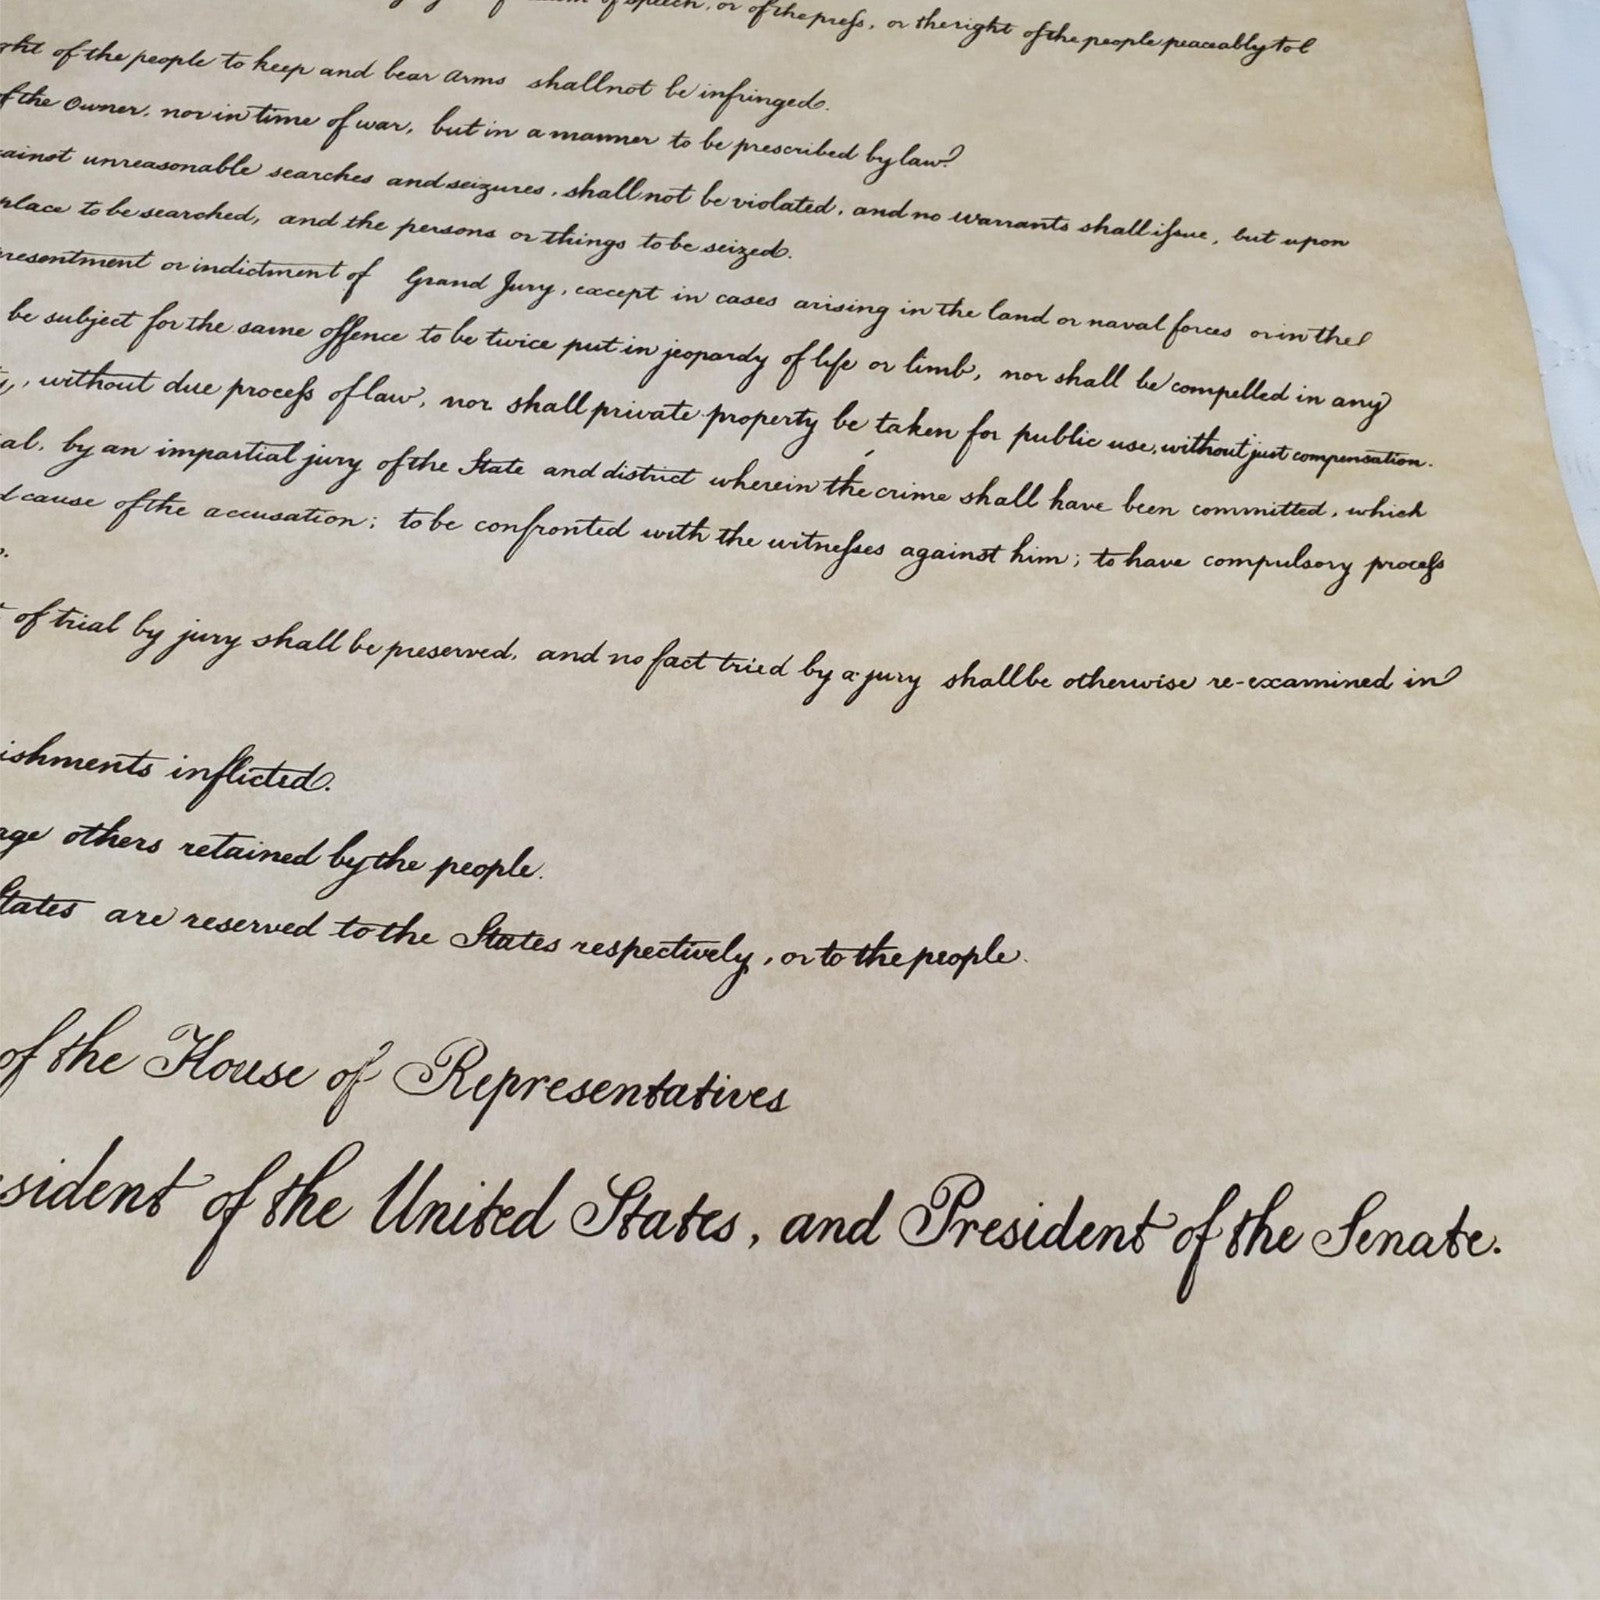 of speech, or of the press, or the right of the people peaceably to
of the people to keep and bear arms shall not be infringed.
of the Owner, nor in time of war, but in a manner to be prescribed by law.
unreasonable searches and seizures, shall not be violated, and no warrants shall issue, but upon
place to be searched, and the persons or things to be seized.
or indictment of Grand Jury, except in cases arising in the land or naval forces or in the
be subject for the same offence to be twice put in jeopardy of life or limb, nor shall be compelled in any
, without due process of law, nor shall private property be taken for public use, without just compensation.
by an impartial jury of the State and district wherein the crime shall have been committed, which
cause of the accusation; to be confronted with the witnesses against him; to have compulsory process
of trial by jury shall be preserved, and no fact tried by a jury shall be otherwise re-examined in
ishments inflicted.
others retained by the people.
States are reserved to the States respectively, or to the people.
of the House of Representatives
sident of the United States, and President of the Senate.